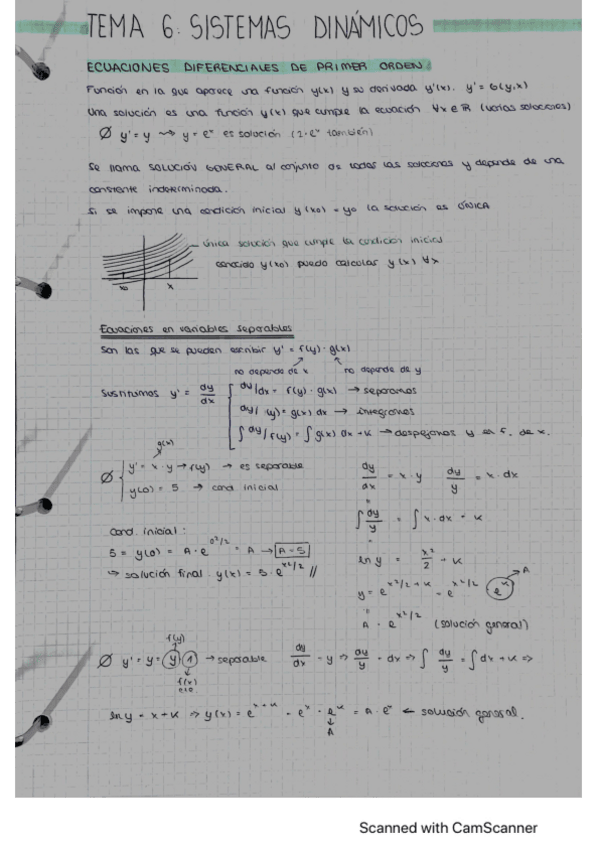 TEMA 6: SISTEMAS DINÁMICOS
ECUACIONES DIFERENCIALES DE PRIMER ORDEN
Función en la que aparece una función y(x) y su derivada y'(x). y' = G(y,x)
Una solución es una función y(x) que cumple la ecuación ∀x ∈ ℝ (varias soluciones)
∅ y' = y ⇝ y = eˣ es solución (2·eˣ también)
Se llama SOLUCIÓN GENERAL al conjunto de todas las soluciones y depende de una
constante indeterminada.
Si se impone una condición inicial y(x₀) = y₀ la solución es ÚNICA
única solución que cumple la condición inicial
conocido y(x₀) puedo calcular y(x) ∀x
x₀ x
Ecuaciones en variables separables
Son las que se pueden escribir y' = f(y) · g(x)
no depende de x no depende de y
Sustituimos y' = dy/dx
dy/dx = f(y) · g(x) → separamos
dy/f(y) = g(x) dx → integramos
∫ dy/f(y) = ∫ g(x) dx + K → despejamos y en f. de x.
g(x)
∅ y' = x · y → f(y) → es separable
y(0) = 5 → cond. inicial
dy/dx = x · y dy/y = x · dx
∫ dy/y = ∫ x · dx + K
Cond. inicial:
5 = y(0) = A · e^0²/2 = A → A = 5
↪ solución final y(x) = 5 · e^x²/2 //
ln y = x²/2 + K
y = e^x²/2 + K = e^x²/2 · e^K → A
A · e^x²/2 (solución general)
f(y)
∅ y' = y = y · 1 → separable dy/dx = y ⇒ dy/y = dx ⇒ ∫ dy/y = ∫ dx + K ⇒
ln y = x + K ⇒ y(x) = e^x+K = eˣ · e^K = A · eˣ ← solución general.
A
Scanned with CamScanner